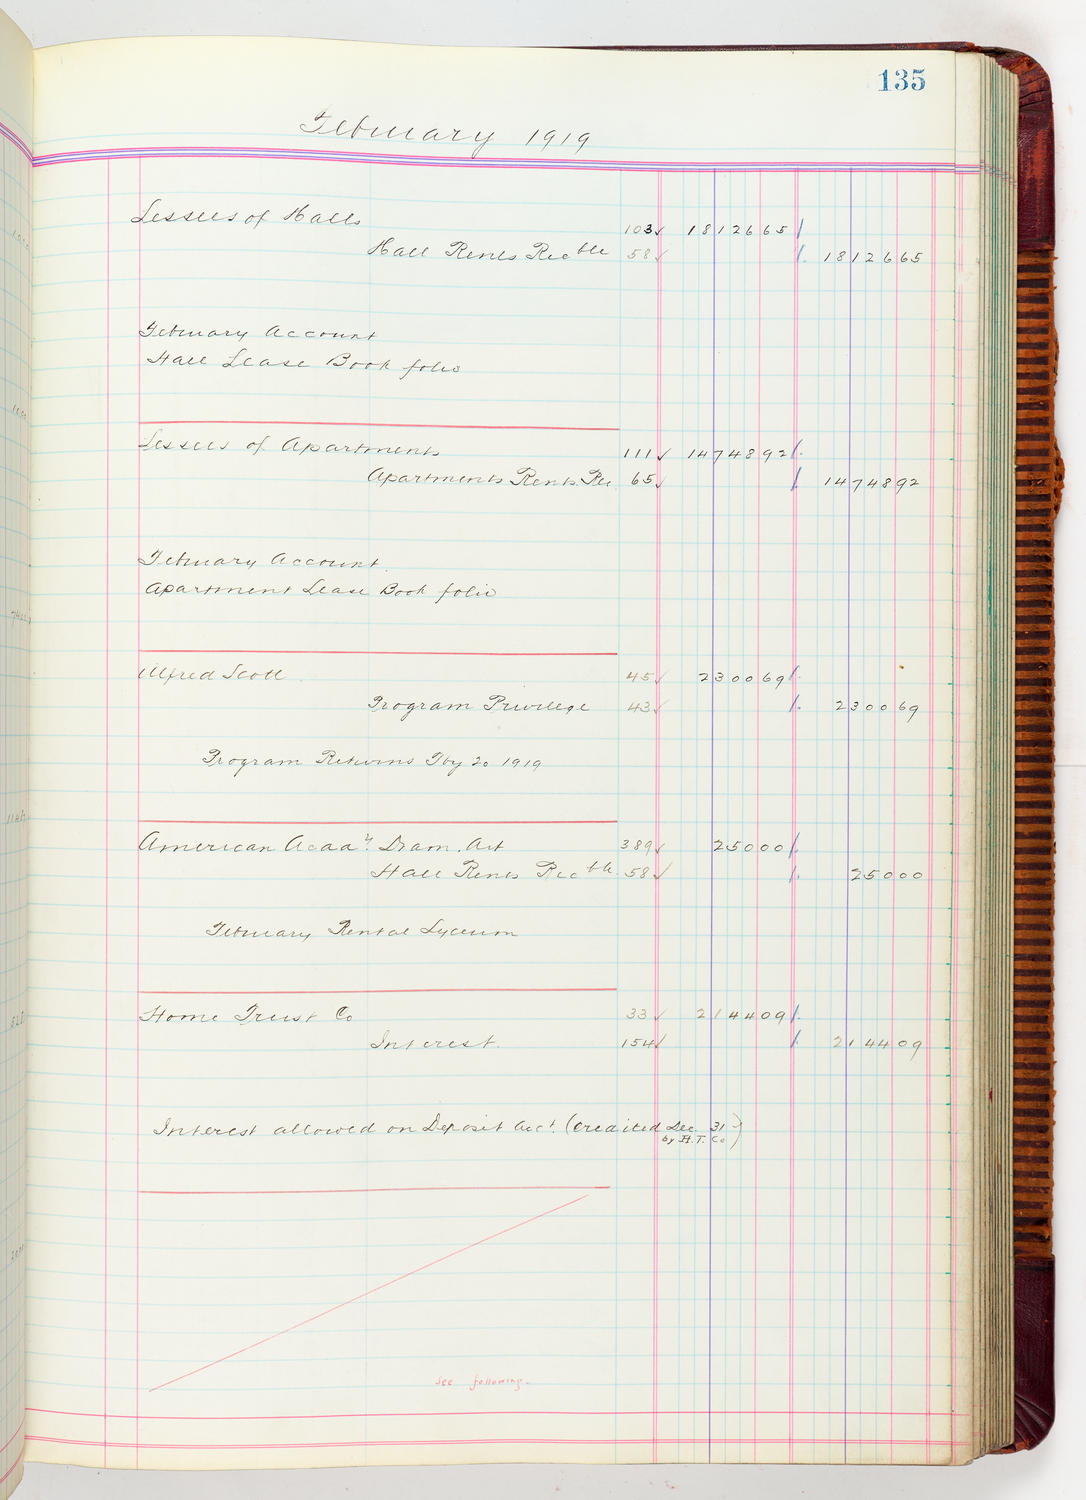 135
February 1919
Lessees of Halls 103 ✓ 18126 65
Hall Rents Rec ble 58 ✓ 18126 65
February Account
Hall Lease Book folio
Lessees of Apartments 111 ✓ 14748 92
Apartments Rents. Rec 65 ✓ 14748 92
February Account.
Apartment Lease Book folio
Alfred Scott 45 ✓ 2300 69
Program Privilege 43 ✓ 2300 69
Program Returns Fby 20 1919
American Acad y. Dram. Art 389 ✓ 250 00
Hall Rents Rec ble 58 ✓ 250 00
February Rental Lyceum
Home Trust Co 33 ✓ 2144 09
Interest. 154 ✓ 2144 09
Interest allowed on Deposit Acct. (credited Dec. 31
by H.T. Co)
See following.